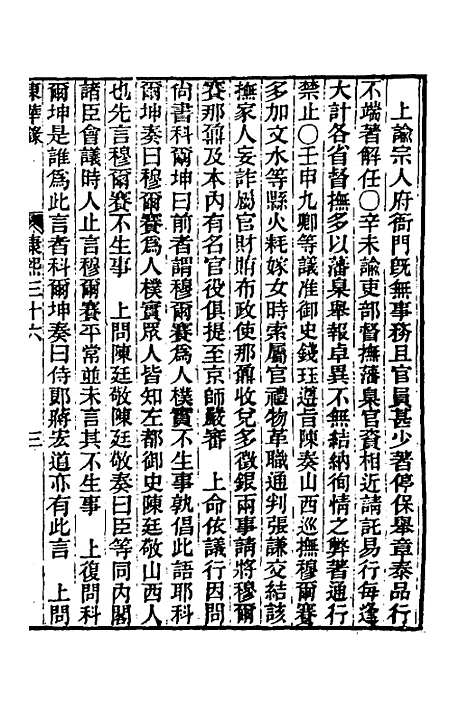 上諭宗人府衙門旣無事務且官員甚少著停保舉章泰品行
不端著解任○辛未諭吏部督撫藩臬官資相近請託易行每逢
大計各省督撫多以藩臬舉報卓異不無結納徇情之弊著通行
禁止○壬申九卿等議准御史錢珏遵旨陳奏山西巡撫穆爾賽
多加文水等縣火耗嫁女時索屬官禮物革職通判張謙交結該
撫家人妄詐屬官財賄布政使那鼐收兌多徵銀兩事請將穆爾
賽那鼐及本內有名官役俱提至京師嚴審　上命依議行因問
尙書科爾坤曰前者謂穆爾賽爲人樸實不生事孰倡此語耶科
爾坤奏曰穆爾賽爲人樸實眾人皆知左都御史陳廷敬山西人
也先言穆爾賽不生事　上問陳廷敬陳廷敬奏曰臣等同內閣
諸臣會議時人止言穆爾賽平常並未言其不生事　上復問科
爾坤是誰爲此言者科爾坤奏曰侍郎蔣宏道亦有此言　上問
東華錄　康熙三十六　三